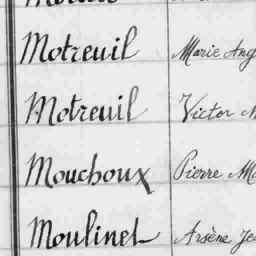 Motreuil Marie Ang
Motreuil Victor M
Mouchoux Pierre Ma
Moulinet Arsène Je